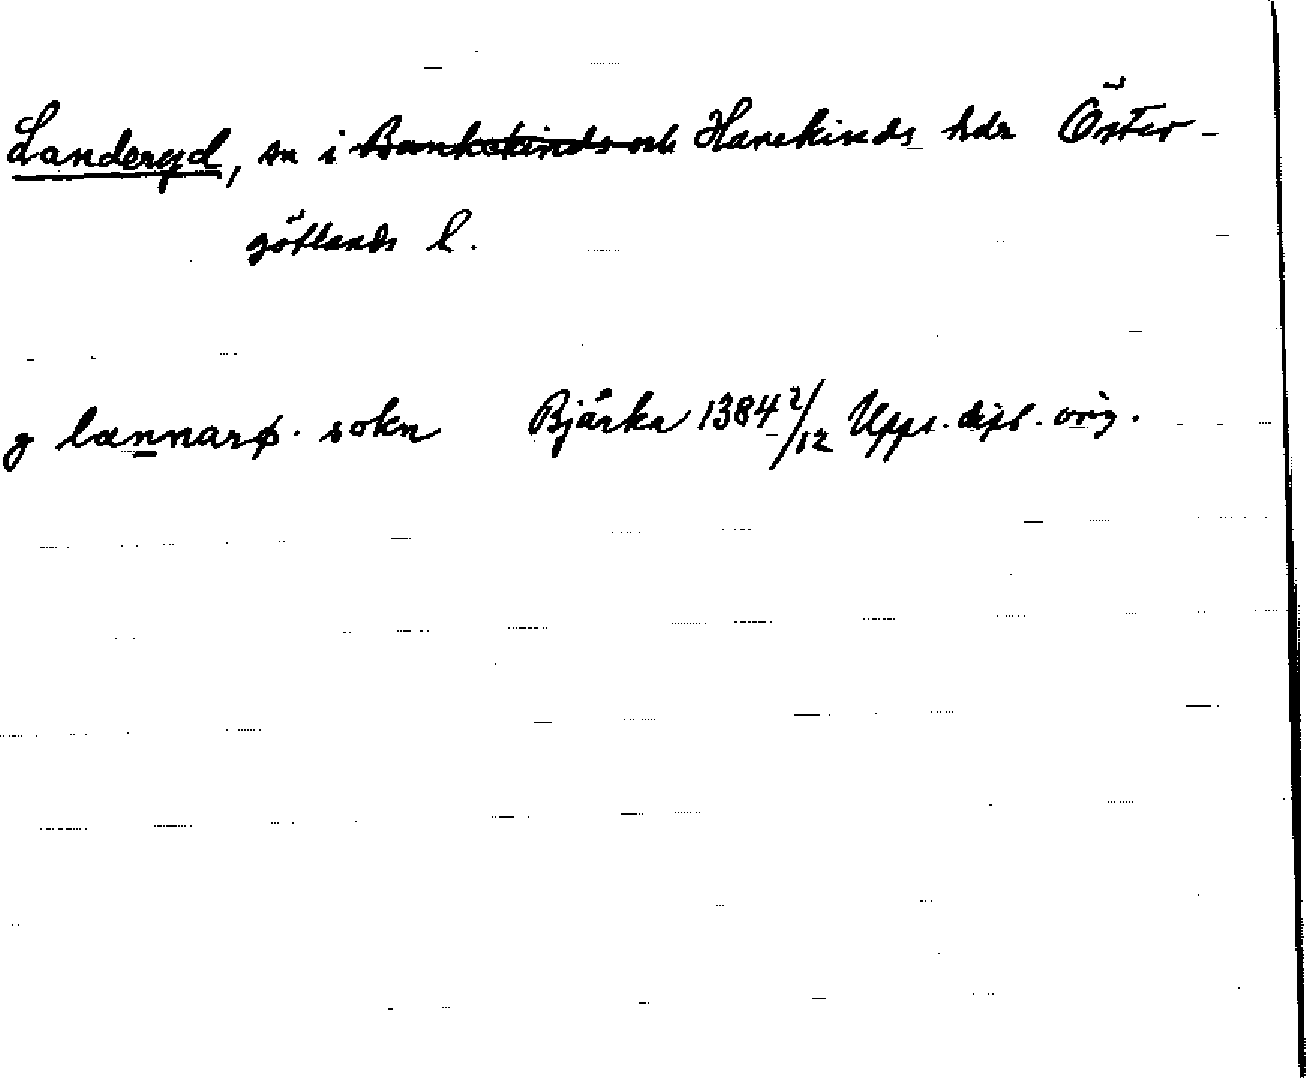 Landeryd, sn i ~~Bankekinds och~~ Hanekinds hdr Öster-
götlands l.
g lænnarø. sokn Bjärka 1384 2/12 Upps. dipl. orig.